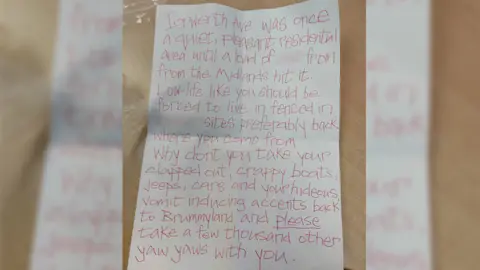 Iorwerth Ave was once
a quiet, pleasant residential
area until a load of from
from the Midlands hit it.
Low-life like you should be
forced to live in fenced in
sites preferably back
where you come from
Why don't you take your
clapped out, crappy boats,
jeeps, cars and your hideous,
vomit inducing accents back
to Brummyland and please
take a few thousand other
yaw yaws with you.